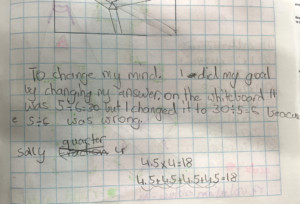 To change my mind. I did my good
by changing my answer, on the whiteboard it
was 5÷6=30 but I changed it to 30÷5=6, becaus
e 5÷6 was wrong.
quarter
Sally 4
4.5x4=18
4.5+4.5+4.5+4.5=18